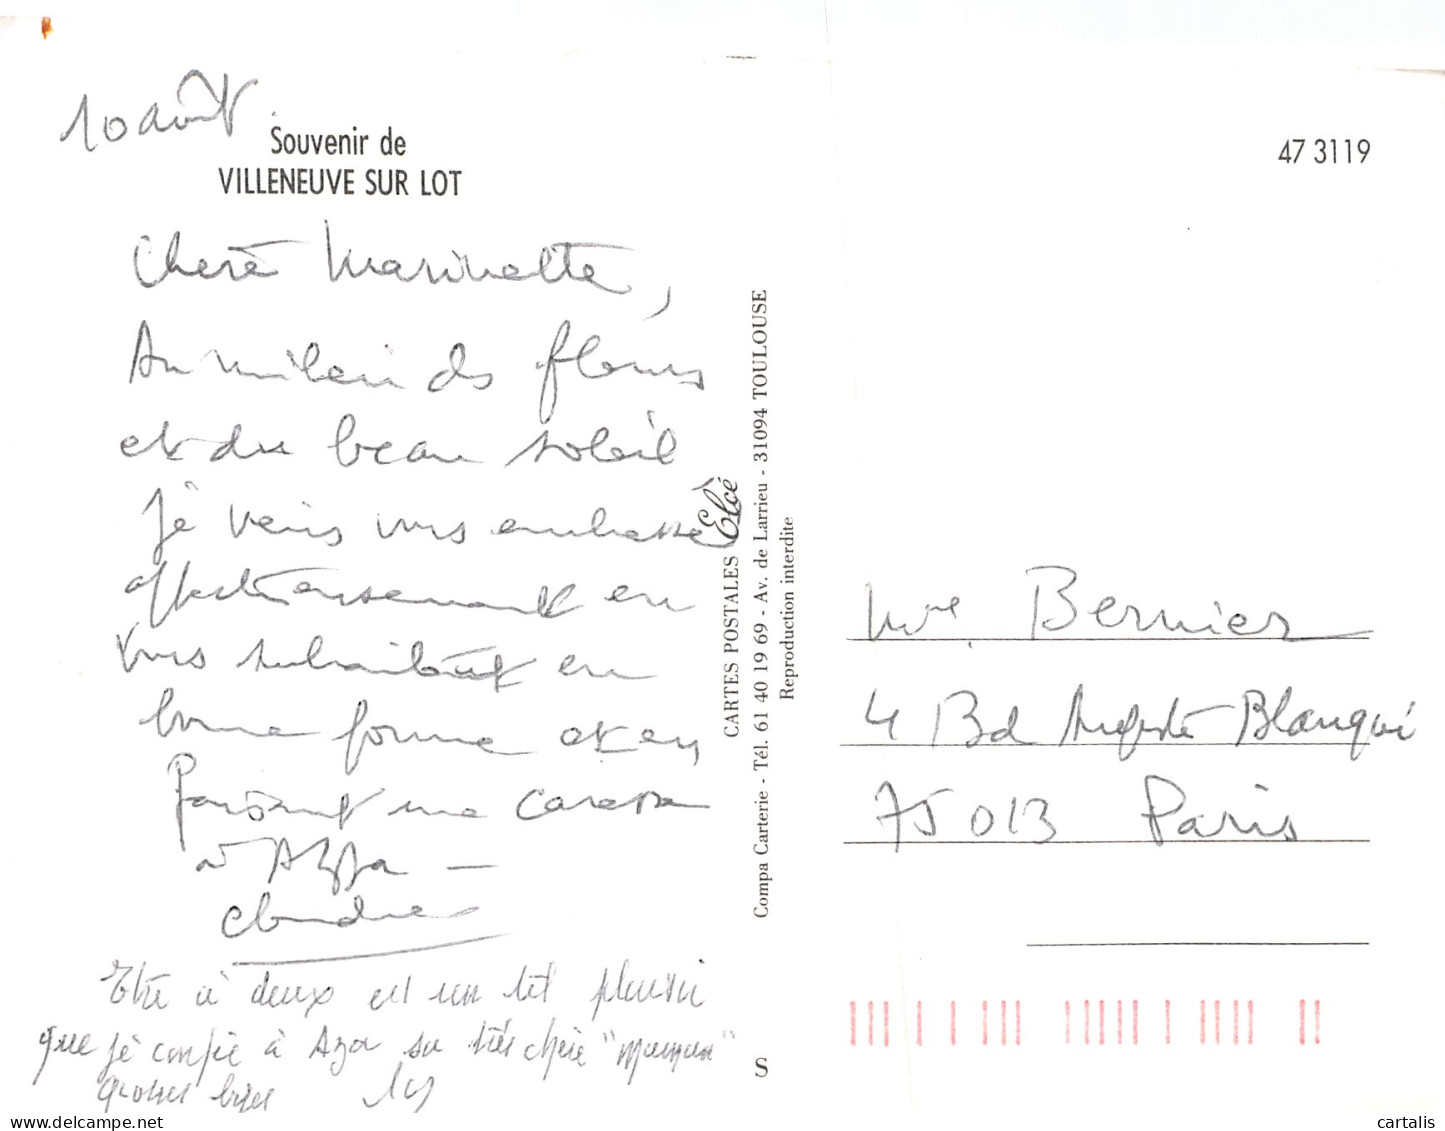 10 août.
Souvenir de
VILLENEUVE SUR LOT
47 3119
Chère Marinette,
Au milieu des fleurs
et du beau soleil
je viens vous embrasser
affectueusement en
vous souhaitant en
bonne forme et en
faisant une caresse
à Azza —
Claudie
Etre à deux est un tel plaisir
que je confie à Aza sa très chère "maman"
grosses bises
CARTES POSTALES Elcé
Compa Carterie - Tél. 61 40 19 69 - Av. de Larrieu - 31094 TOULOUSE
Reproduction interdite
S
Mme Bernier
4 Bd Auguste Blanqui
75013 Paris
cartalis